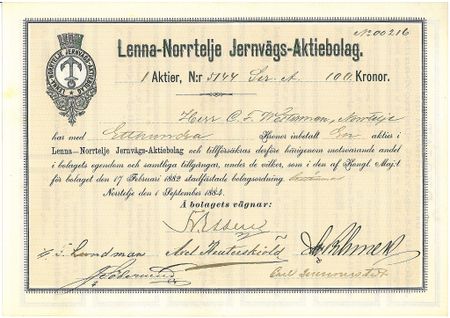 No 00216
LENNA-NORRTELJE JERNVÄGS-AKTIEBOLAG
Lenna-Norrtelje Jernvägs-Aktiebolag.
1 Aktier, N:r 5144 Ser. A. 100 Kronor.
Herr C. F. Norrtelje
har med Etthundra Kronor inbetalt En aktier i
Lenna-Norrtelje Jernvägs-Aktiebolag och tillförsäkras derföre härigenom motsvarande andel
i bolagets egendom och samtliga tillgångar, under de vilkor, som i den af Kongl. Maj:t
för bolaget den 17 Februari 1882 stadfästade bolagsordning
Norrtelje den 1 September 1884.
Å bolagets vägnar:
Lundman Axel Reuterskiöld